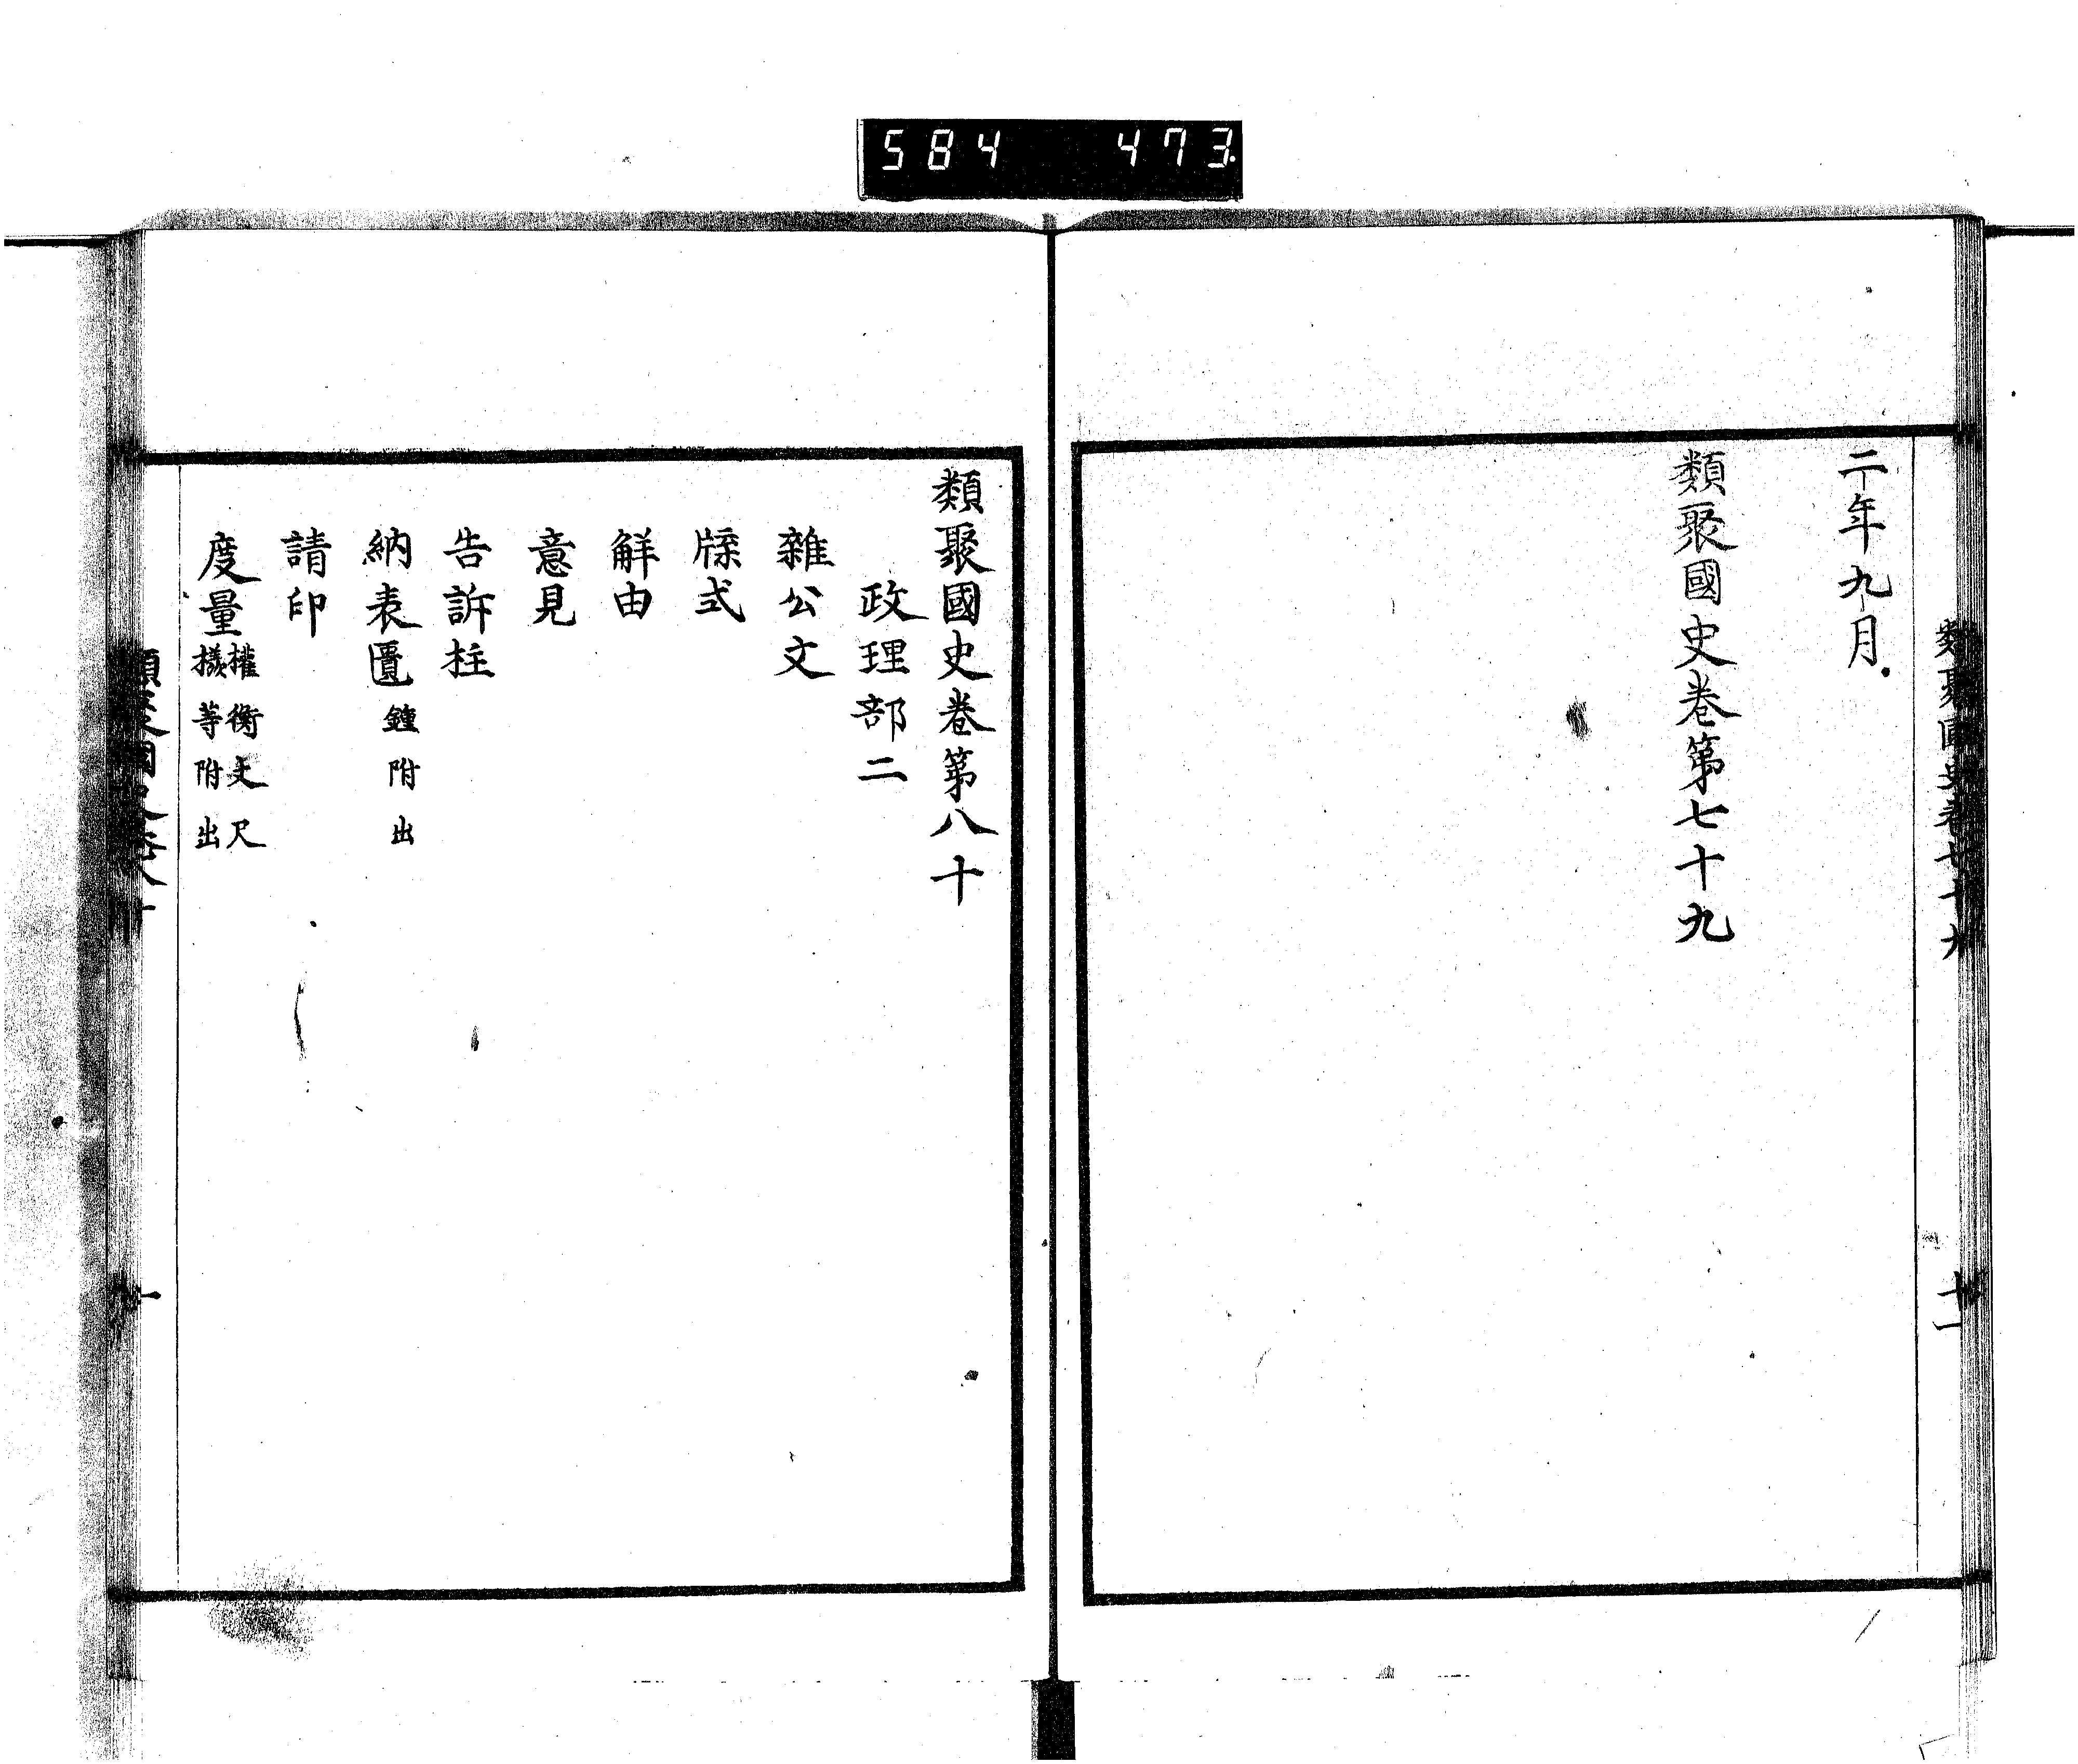 584 473
二年九月
類聚國史卷第七十九
類聚國史卷第八十
政理部二
雜公文
牒式
解由
意見
告訴柱
納表匭 鍾附出
請印
度量 權衡丈尺
擬等附出
十一